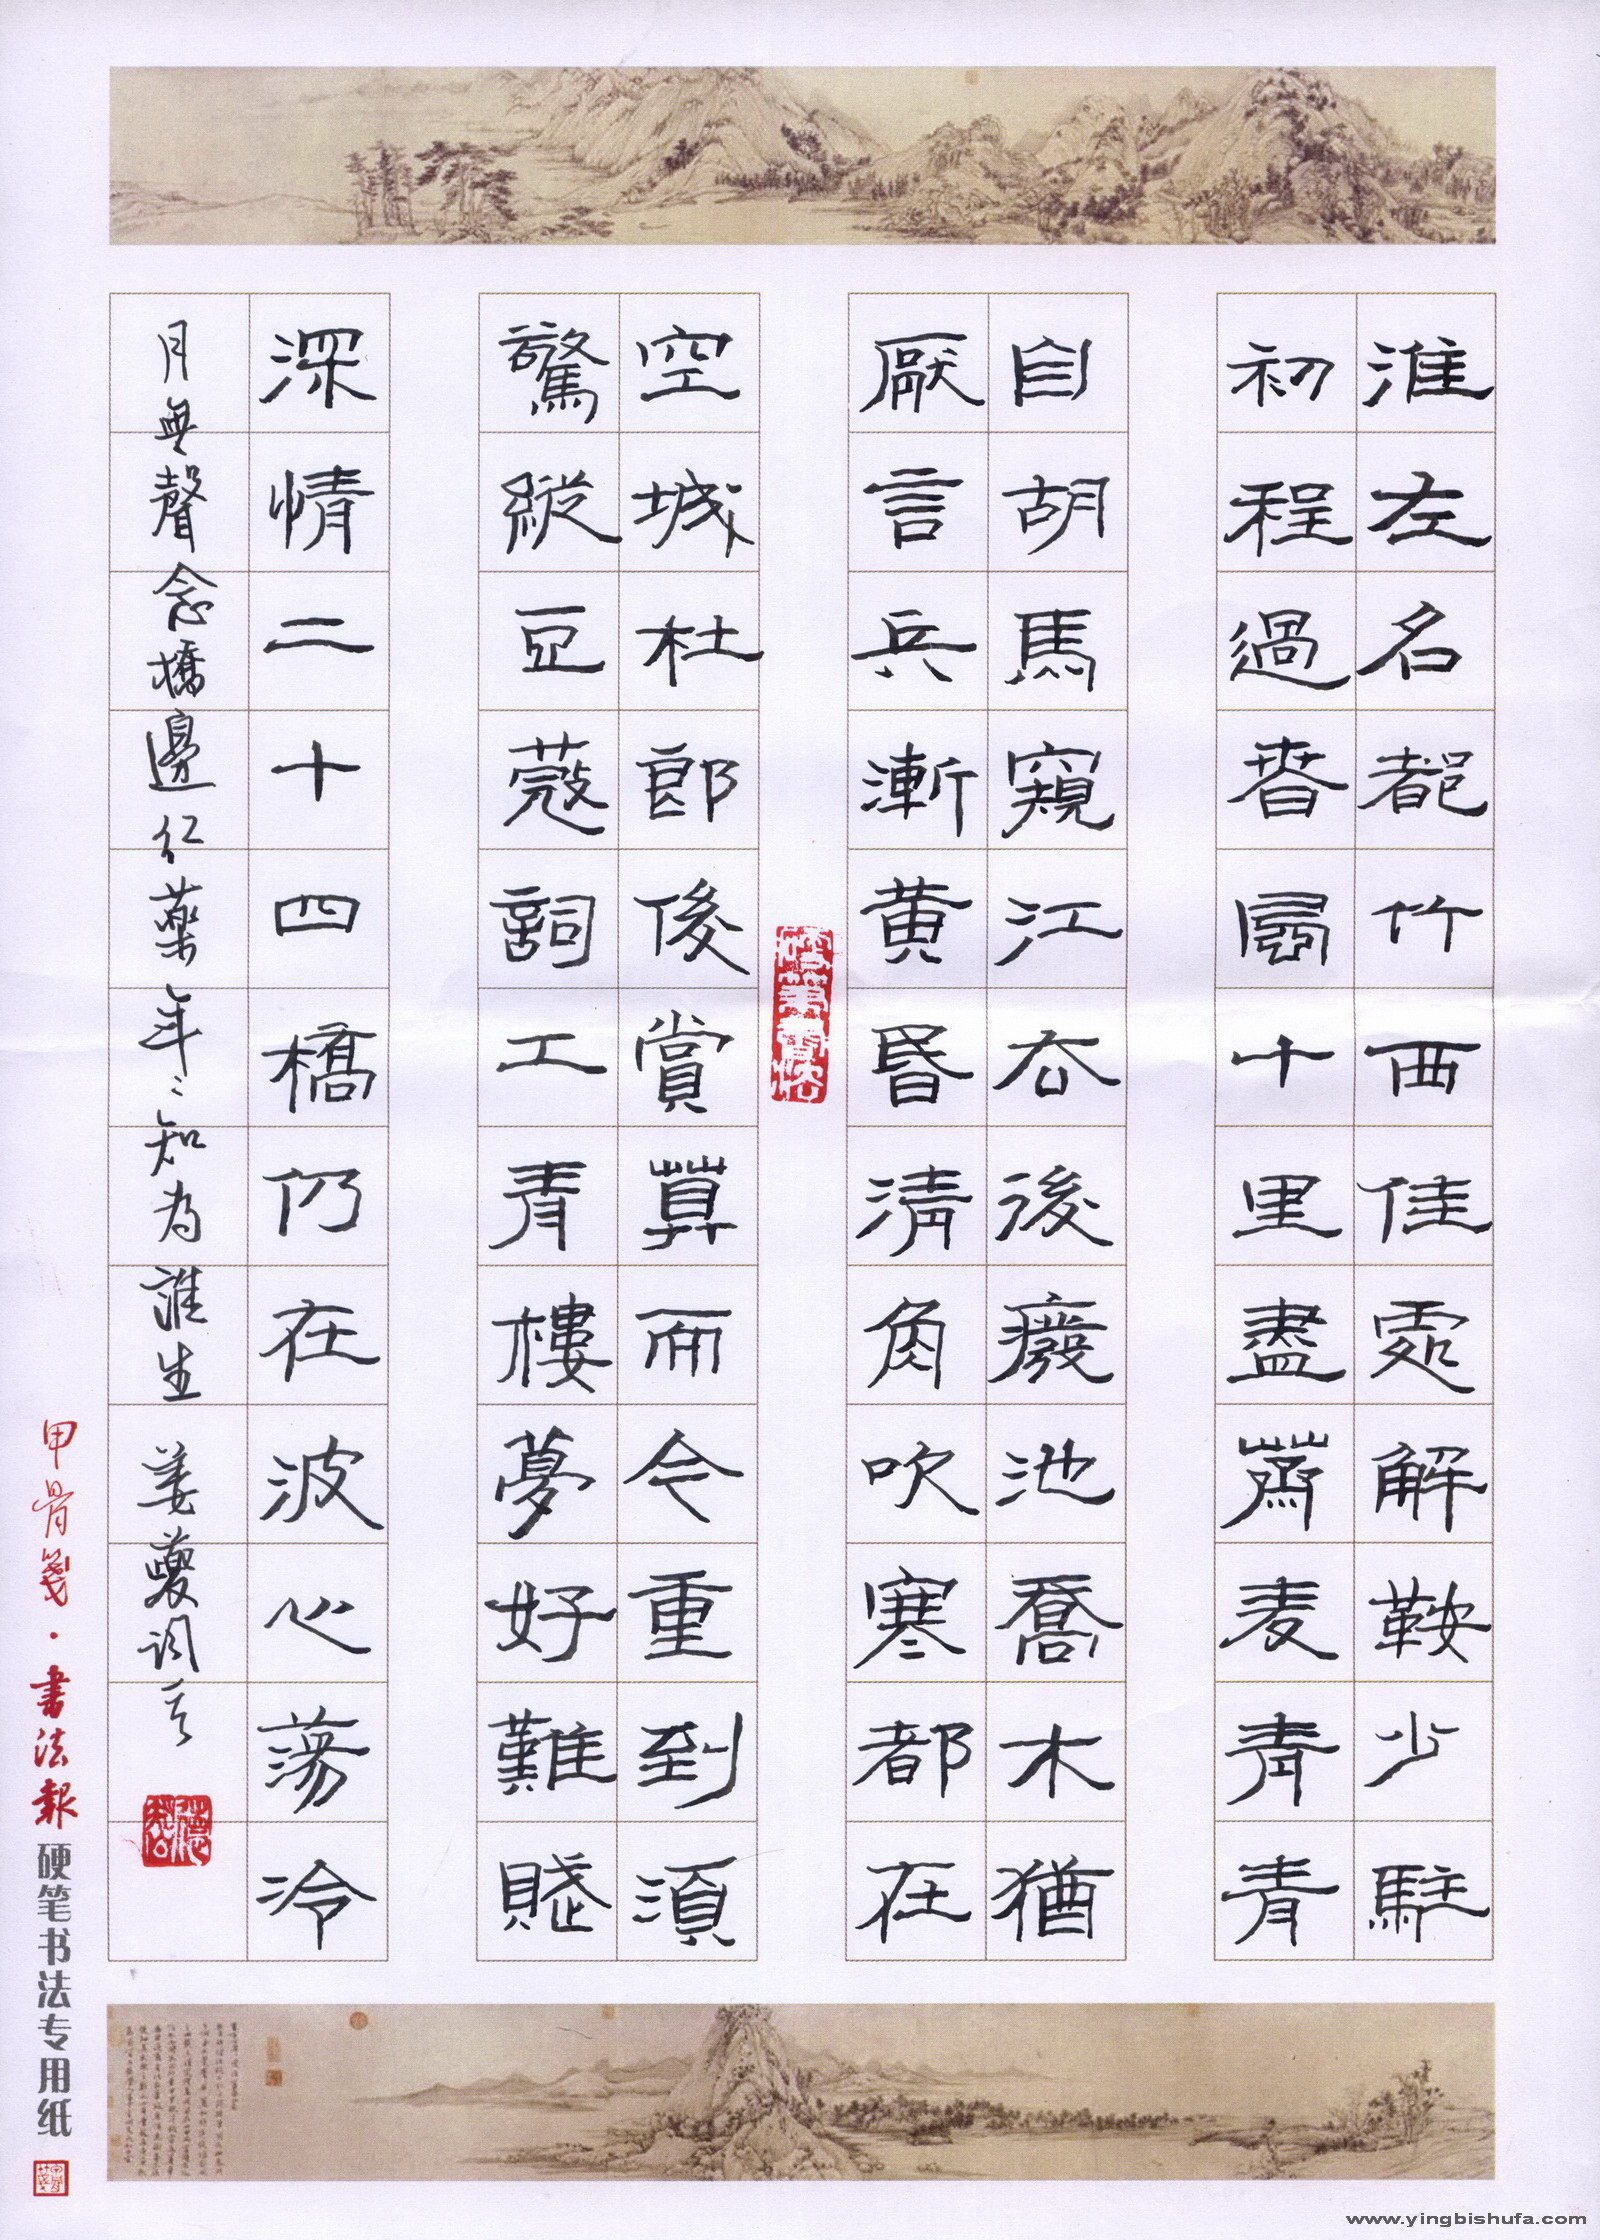 淮左名都竹西佳處解鞍少駐
初程過春風十里盡薺麦青青
自胡馬窺江去後廢池喬木猶
厭言兵漸黄昏清角吹寒都在
空城杜郎俊賞算而今重到須
驚縱豆蔻詞工青樓夢好難賦
深情二十四橋仍在波心蕩冷
月無聲念橋邊红藥年〻知為誰生 姜夔词
硬筆書法
甲骨箋·書法報 硬笔书法专用纸
www.yingbishufa.com